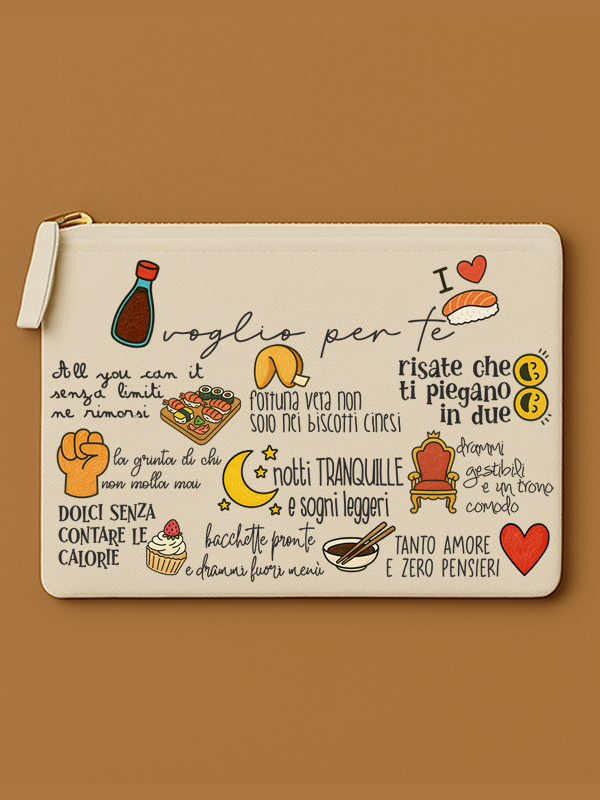 I
voglio per te
All you can it
senza limiti
ne rimorsi
fortuna vera non
solo nei biscotti cinesi
risate che
ti piegano
in due
la grinta di chi
non molla mai
notti TRANQUILLE
e sogni leggeri
drammi
gestibili
e un trono
comodo
DOLCI SENZA
CONTARE LE
CALORIE
bacchette pronte
e drammi fuori menù
TANTO AMORE
E ZERO PENSIERI